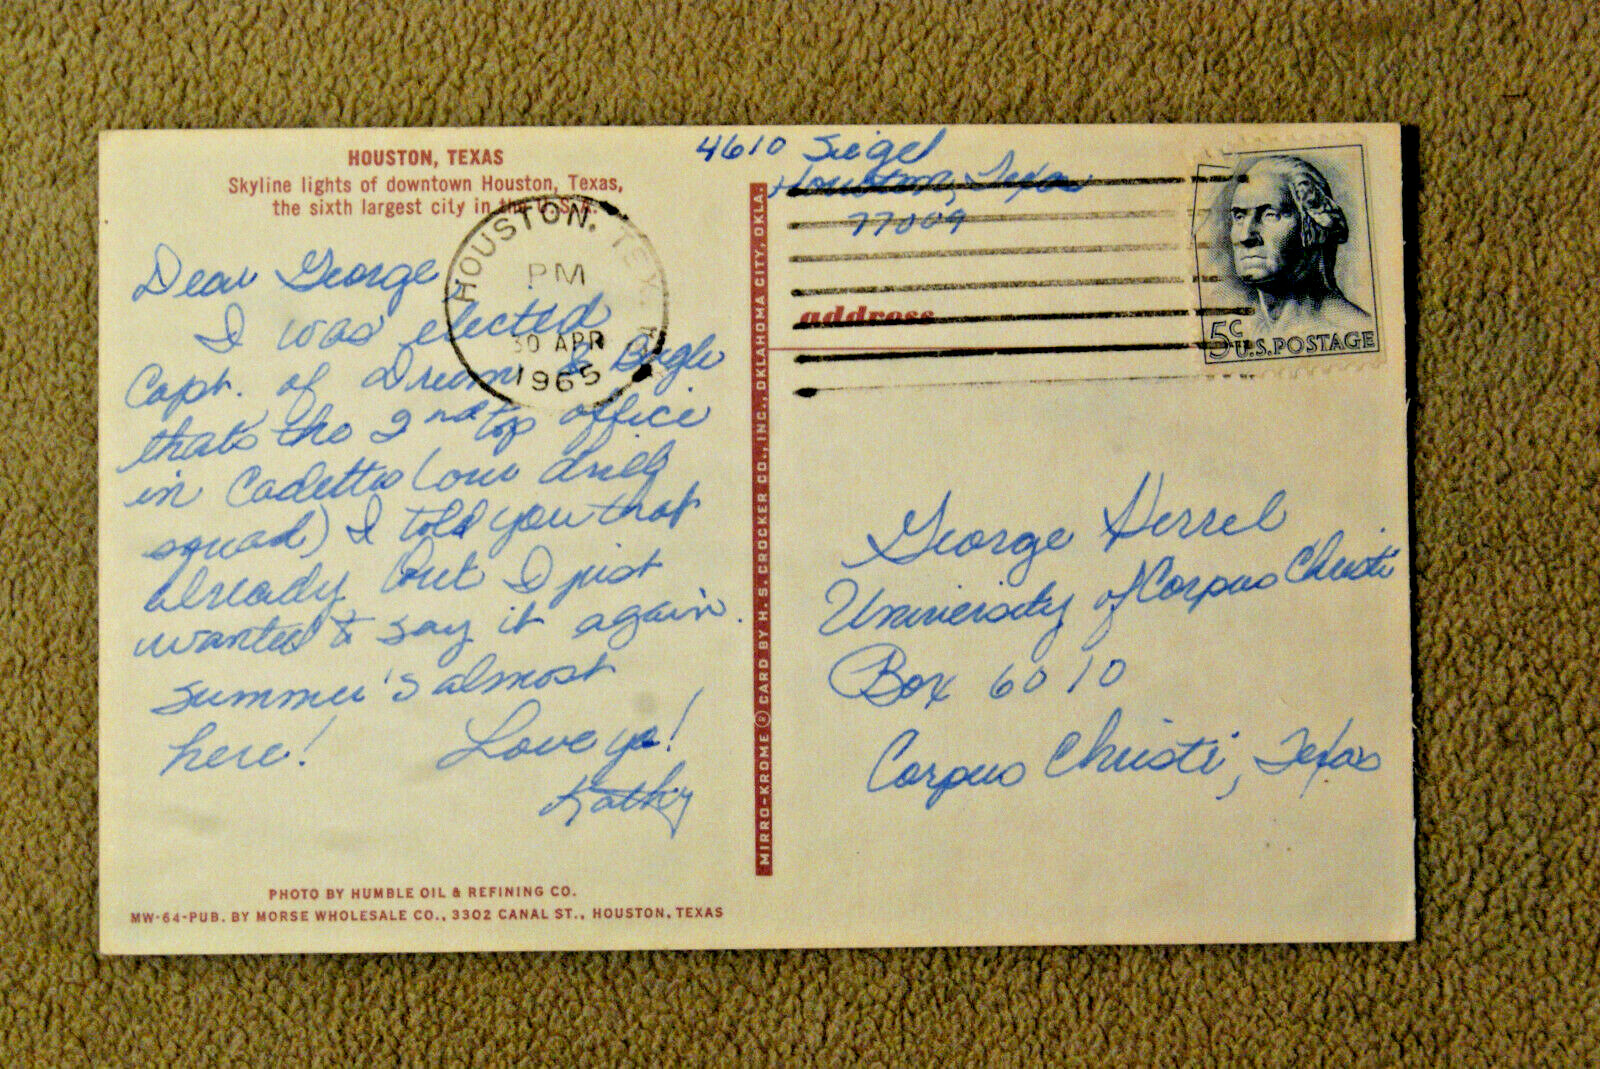 HOUSTON, TEXAS
Skyline lights of downtown Houston, Texas,
the sixth largest city in the U.S.A.
Dear George
I was elected
Capt. of Drum & Bugle
thats the 2nd top office
in Cadettes (our drill
squad) I told you that
already but I just
wanted to say it again.
Summer's almost
here! Love ya!
Kathy
PHOTO BY HUMBLE OIL & REFINING CO.
MW-64-PUB. BY MORSE WHOLESALE CO., 3302 CANAL ST., HOUSTON, TEXAS
HOUSTON, TEX.
PM
30 APR
1965
MIRRO-KROME ® CARD BY H. S. CROCKER CO., INC., OKLAHOMA CITY, OKLA.
4610 Siegel
Houston, Texas
77009
address
5c
U.S. POSTAGE
George Herrel
University of Corpus Christi
Box 6010
Corpus Christi, Texas